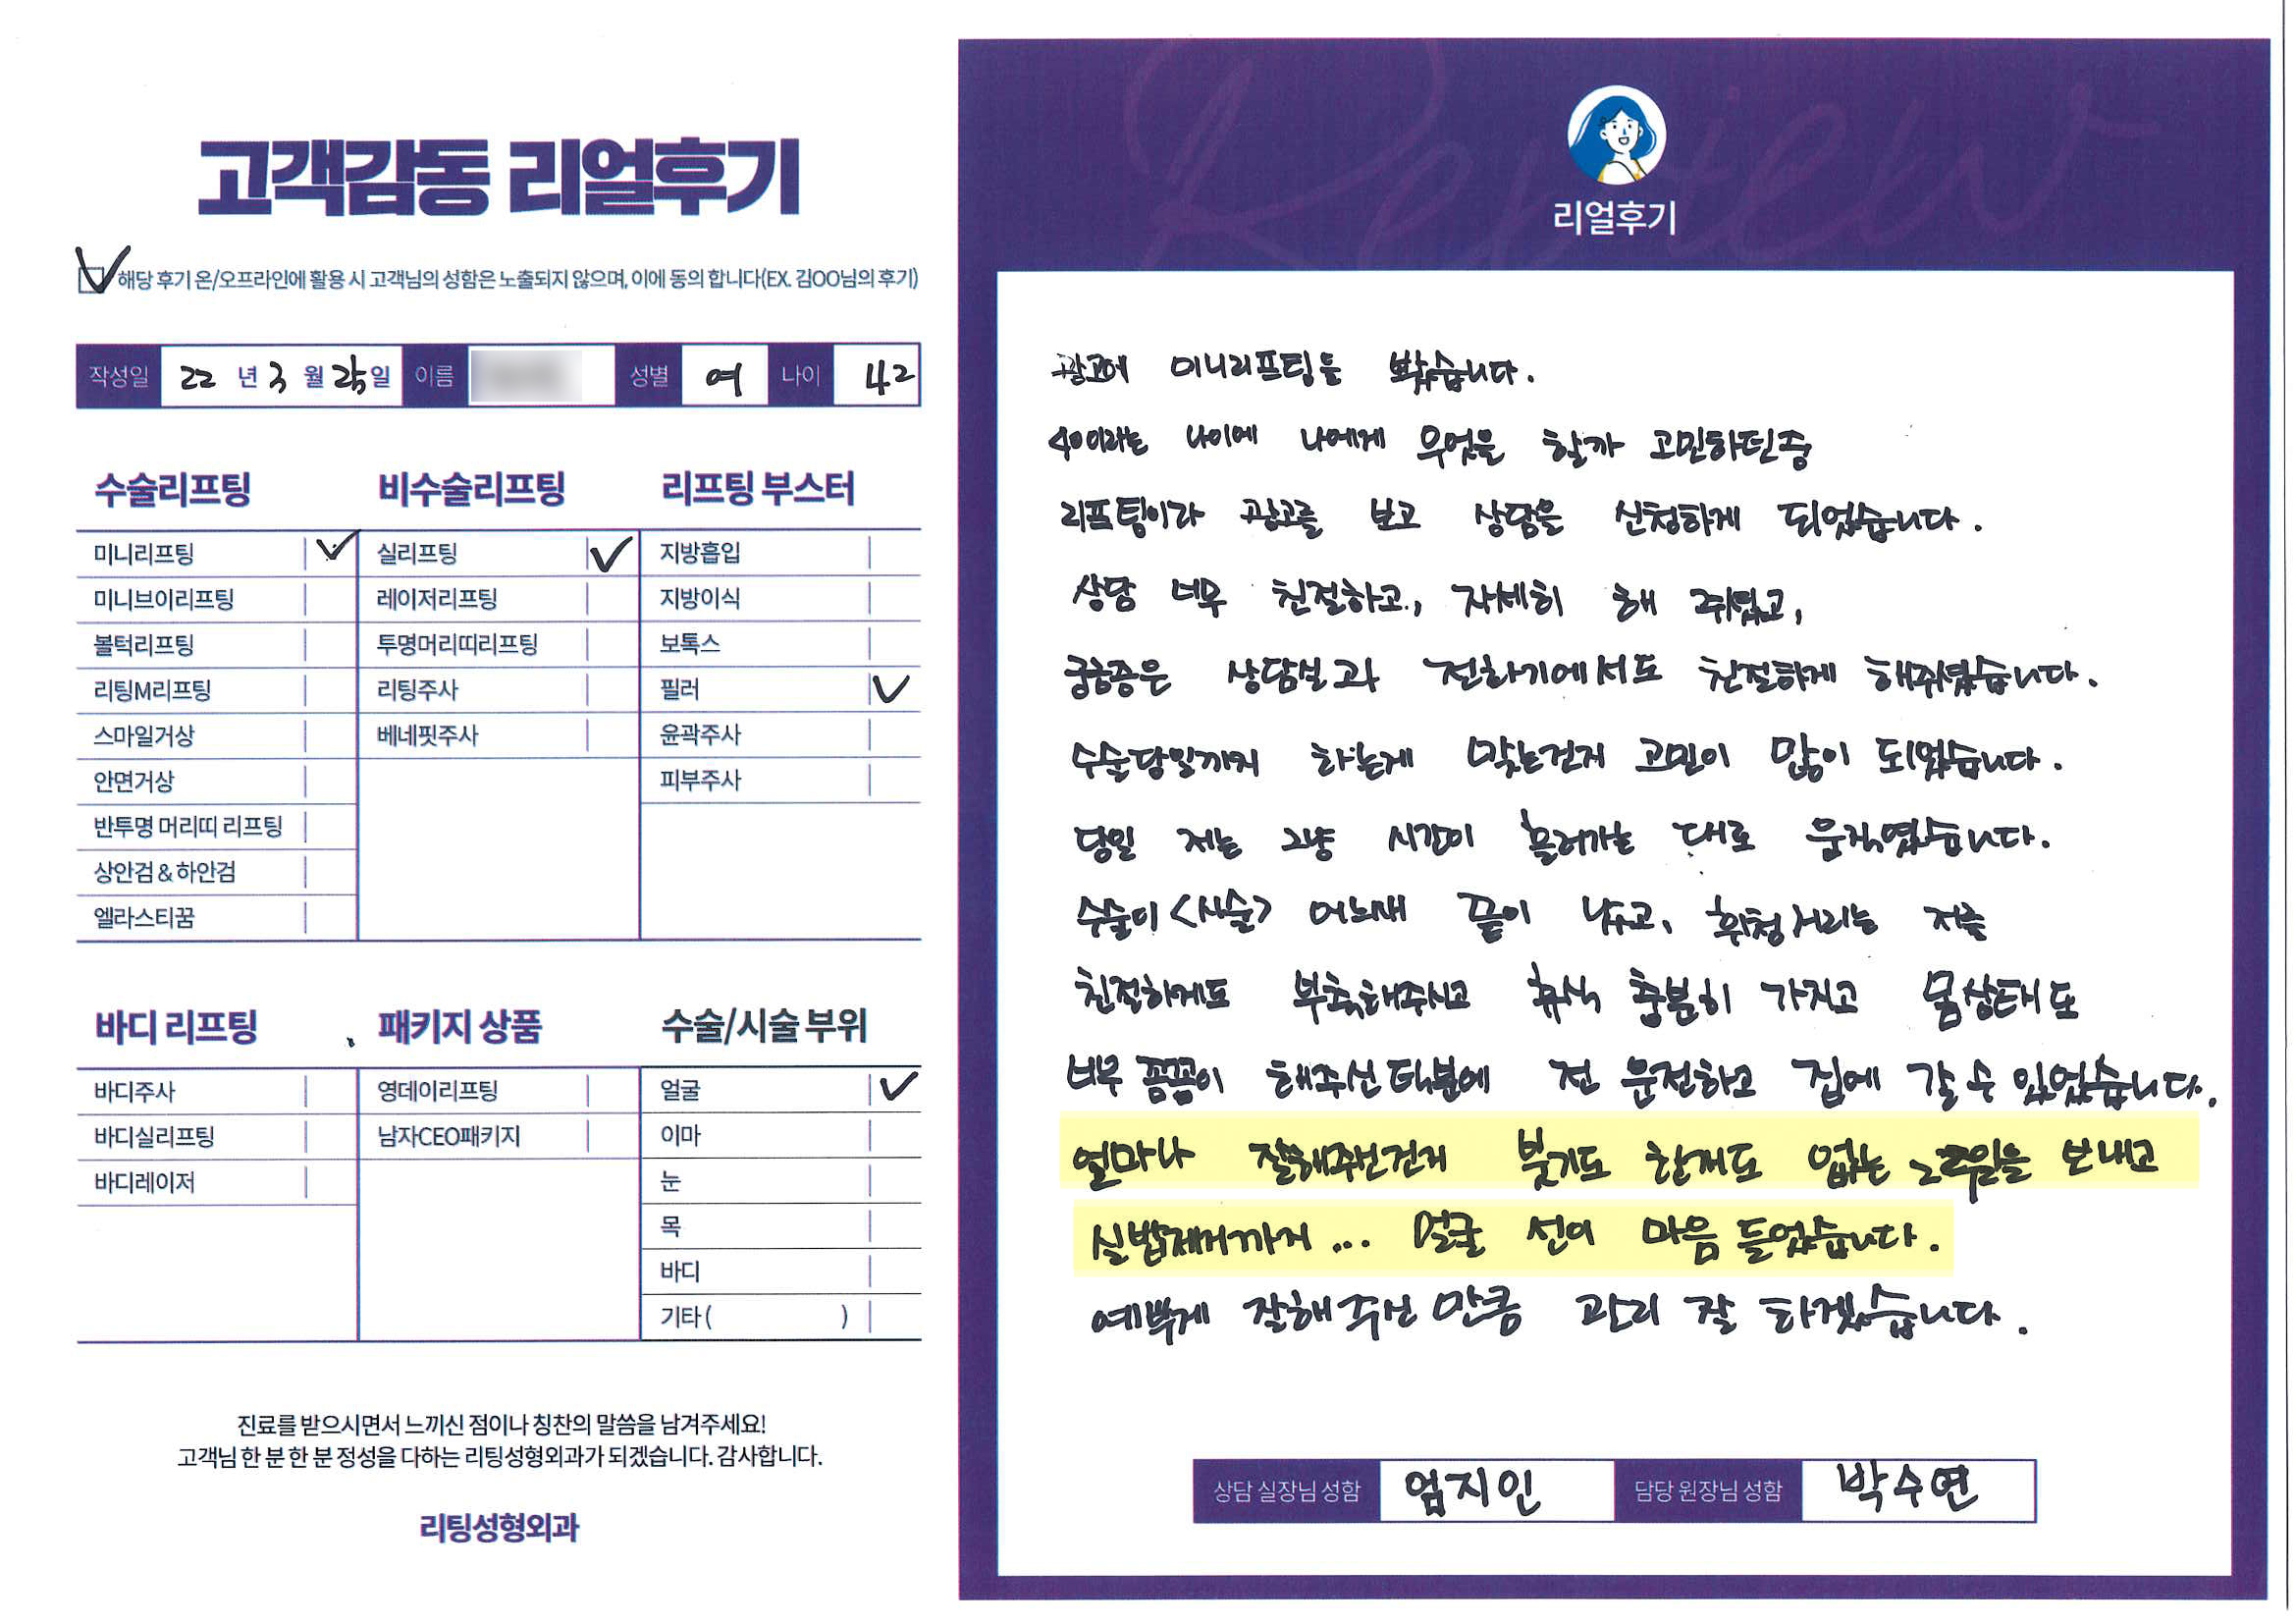 고객감동 리얼후기
해당 후기 온/오프라인에 활용 시 고객님의 성함은 노출되지 않으며, 이에 동의 합니다(EX. 김OO님의 후기)
작성일 22 년 3 월 일 이름 성별 여 나이 42
수술리프팅
미니리프팅
미니브이리프팅
볼턱리프팅
리팅M리프팅
스마일거상
안면거상
반투명 머리띠 리프팅
상안검 & 하안검
엘라스티꿈
비수술리프팅
실리프팅
레이저리프팅
투명머리띠리프팅
리팅주사
베네핏주사
리프팅 부스터
지방흡입
지방이식
보톡스
필러
윤곽주사
피부주사
바디 리프팅
바디주사
바디실리프팅
바디레이저
패키지 상품
영데이리프팅
남자CEO패키지
수술/시술 부위
얼굴
이마
눈
목
바디
기타 ( )
진료를 받으시면서 느끼신 점이나 칭찬의 말씀을 남겨주세요!
고객님 한 분 한 분 정성을 다하는 리팅성형외과가 되겠습니다. 감사합니다.
리팅성형외과
Review
리얼후기
광고에 미니리프팅을 봤습니다.
40이라는 나이에 나에게 무엇을 할까 고민하던중
리프팅이라 광고를 보고 상담을 신청하게 되었습니다.
상담 너무 친절하고, 자세히 해 주셨고,
궁금증은 상담실과 전화기에서도 친절하게 해주셨습니다.
수술당일까지 하는게 맞는건지 고민이 많이 되었습니다.
당일 저는 그냥 시간이 흘러가는 대로 움직였습니다.
수술이 <시술> 어느새 끝이 나고, 휘청거리는 저를
친절하게도 부축해주시고 휴식 충분히 가지고 몸상태도
너무 꼼꼼이 해주신 덕분에 전 운전하고 집에 갈 수 있었습니다.
얼마나 잘해주신건지 붓기도 한개도 없는 2주일을 보내고
실밥제거까지 ... 얼굴 선이 마음 들었습니다.
예쁘게 잘해 주신 만큼 관리 잘 하겠습니다.
상담 실장님 성함 엄지인 담당 원장님 성함 박수연